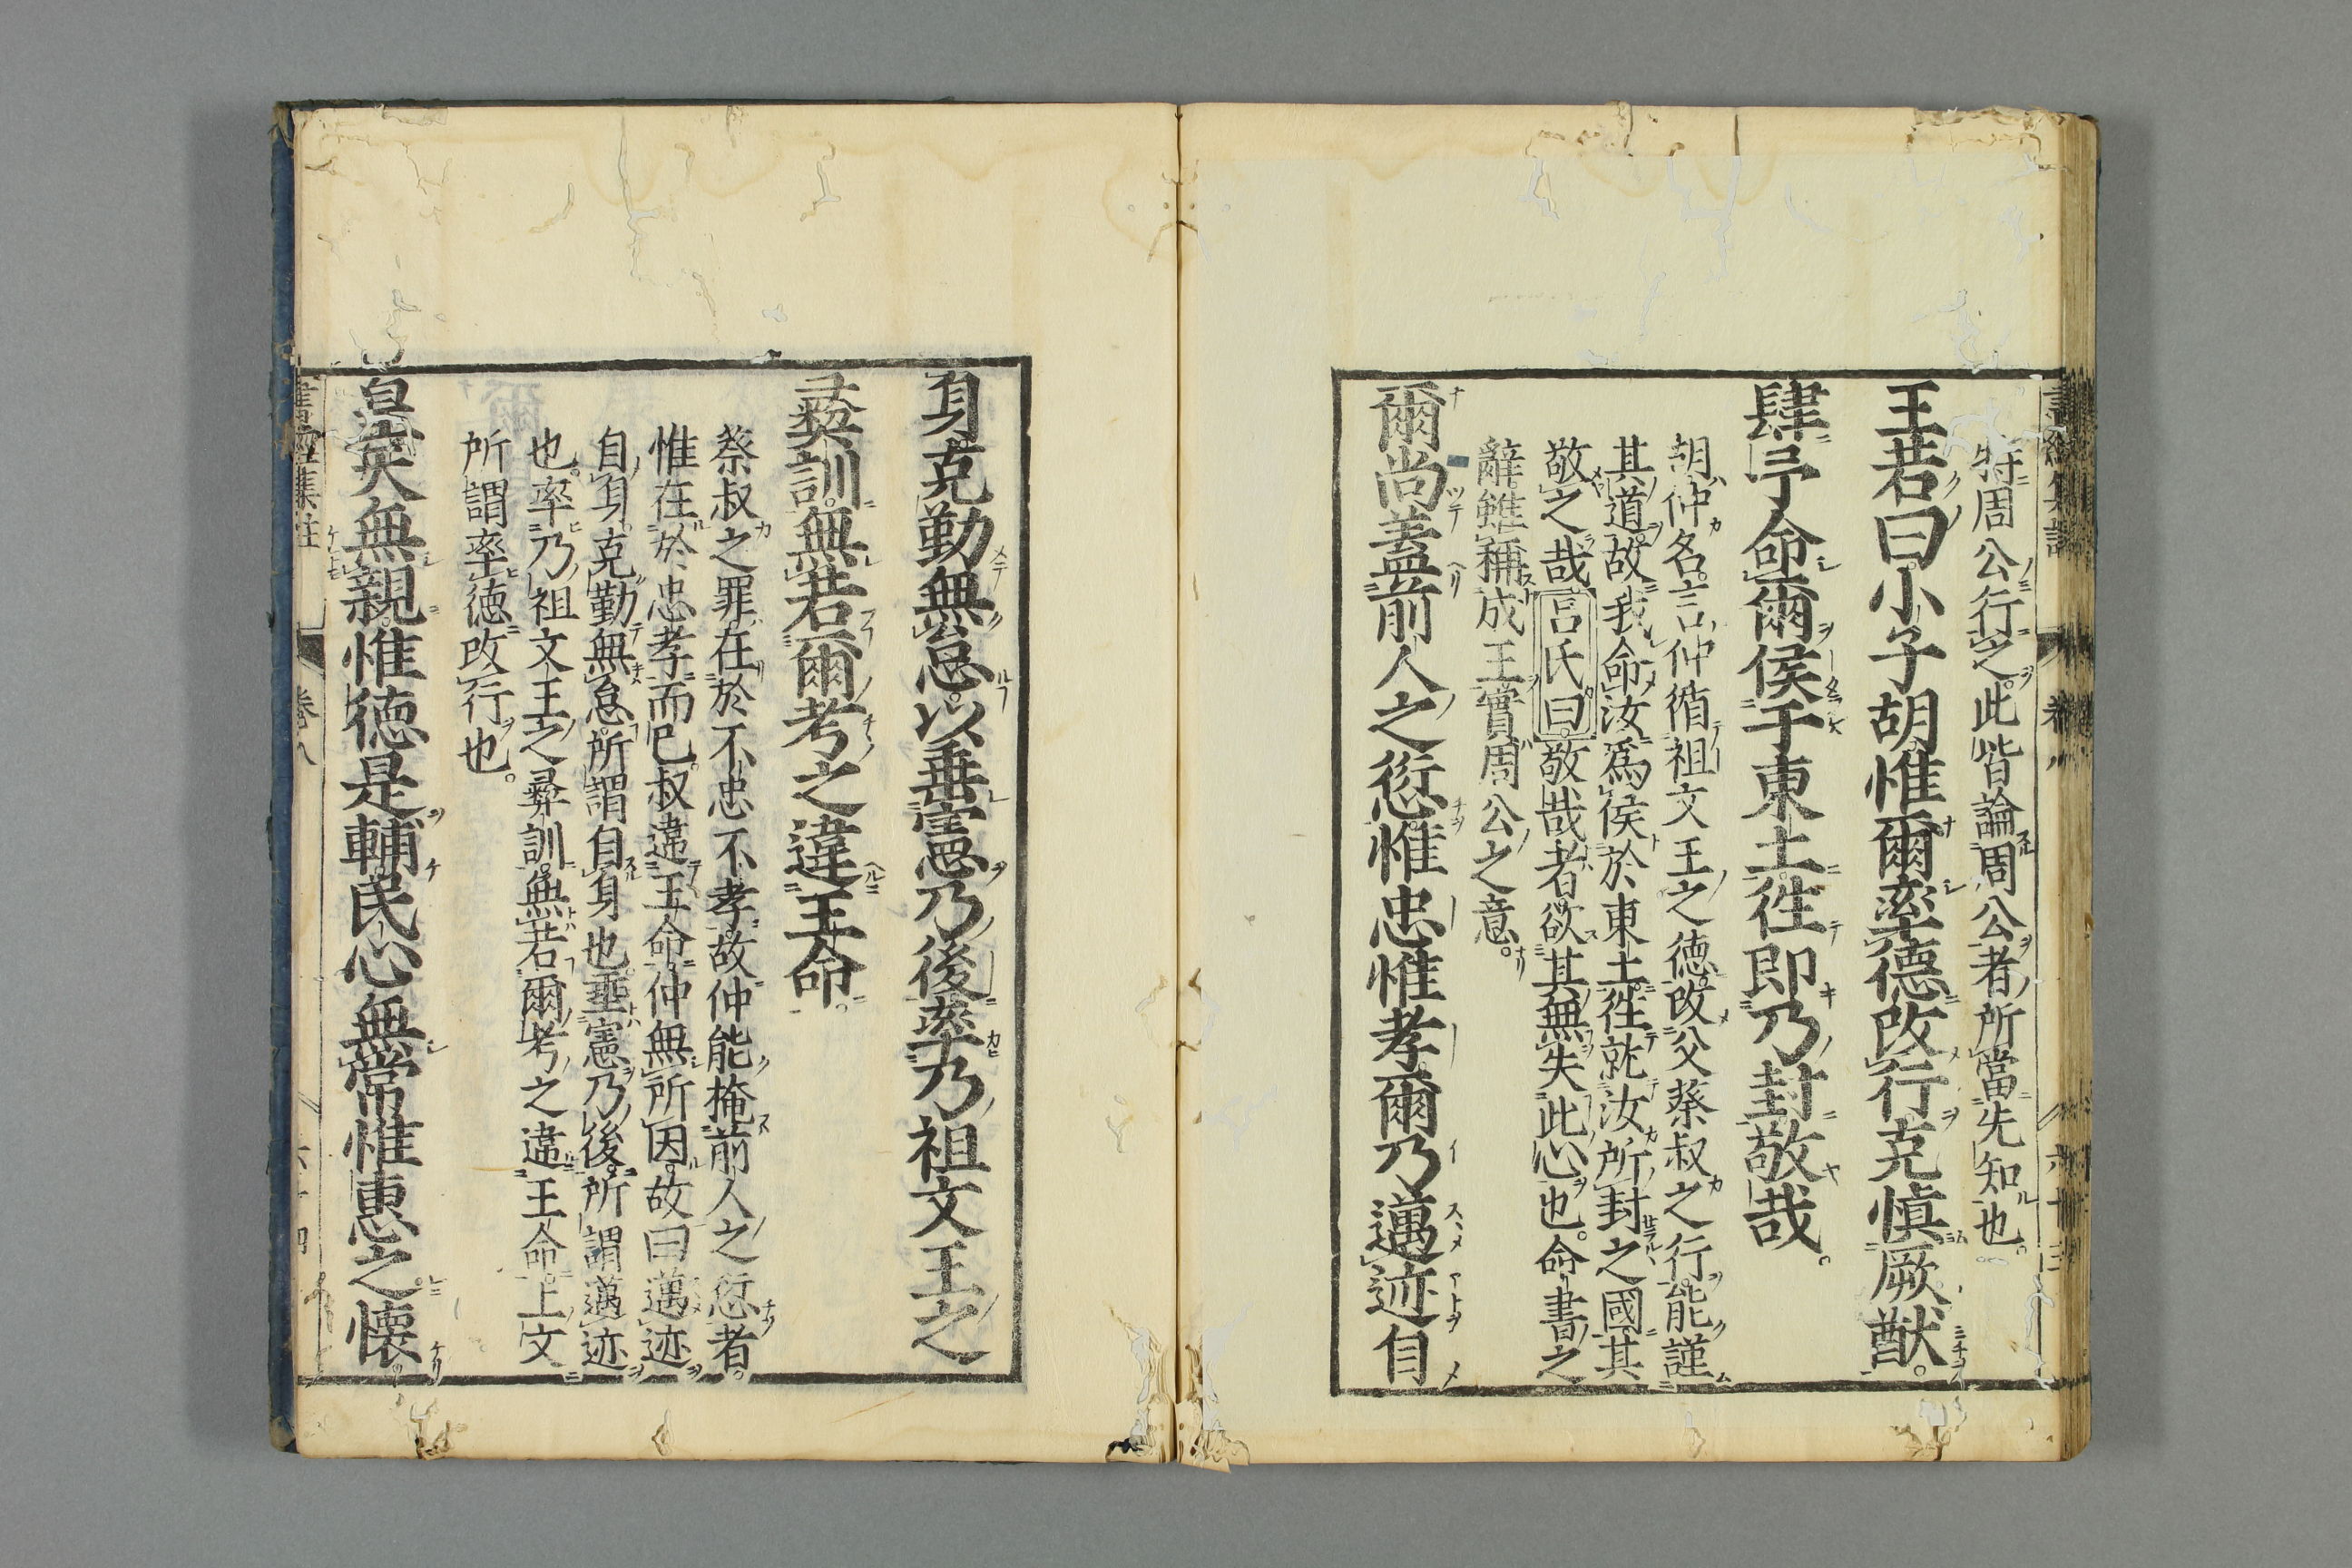 特周公行之此皆論周公者所當先知也。
王若曰小子胡惟爾率德改行克愼厥猷。
肆予命爾侯于東土徃即乃封敬哉。
胡仲名言仲循祖文王之德改父蔡叔之行能謹
其道故我命汝爲侯於東土徃就汝所封之國其
敬之哉呂氏曰敬哉者欲其無失此心也。命書之
辭雖稱成王實周公之意。
爾尚蓋前人之愆惟忠惟孝爾乃邁迹自
身克勤無怠以垂憲乃後率乃祖文王之
彛訓無若爾考之違王命。
蔡叔之罪在於不忠不孝故仲能掩前人之愆者。
惟在於忠孝而已叔違王命仲無所因故曰邁迹
自身克勤無怠所謂自身也垂憲乃後所謂邁迹
也。率乃祖文王之彛訓無若爾考之違王命上文
所謂率德改行也。
皇天無親惟德是輔民心無常惟惠之懷
書經集註 卷八